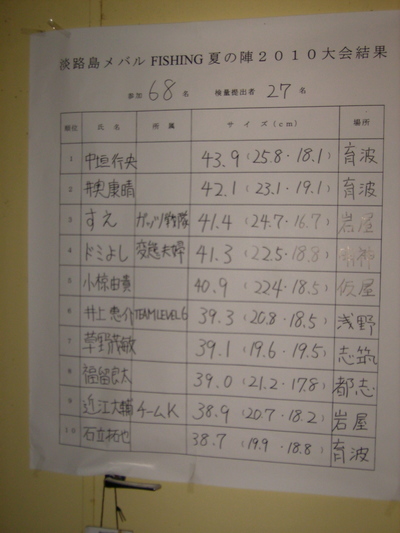 淡路島メバル FISHING 夏の陣２０１０大会結果
参加 68 名 検量提出者 27 名
順位 氏名 所属 サイズ(cm) 場所
1 中垣行央 43.9 (25.8・18.1) 育波
2 井奥康晴 42.1 (23.1・19.1) 育波
3 すえ 41.4 (24.7・16.7) 岩屋
4 ドミよし 変態夫婦 41.3 (22.5・18.8)
5 小椋由貴 40.9 (22.4・18.5) 仮屋
6 井上恵介 TEAM LEVEL6 39.3 (20.8・18.5) 浅野
7 草野茂敏 39.1 (19.6・19.5) 志筑
8 福留良太 39.0 (21.2・17.8) 都志
9 近江大輔 チームK 38.9 (20.7・18.2) 岩屋
10 石立拓也 38.7 (19.9・18.8) 育波